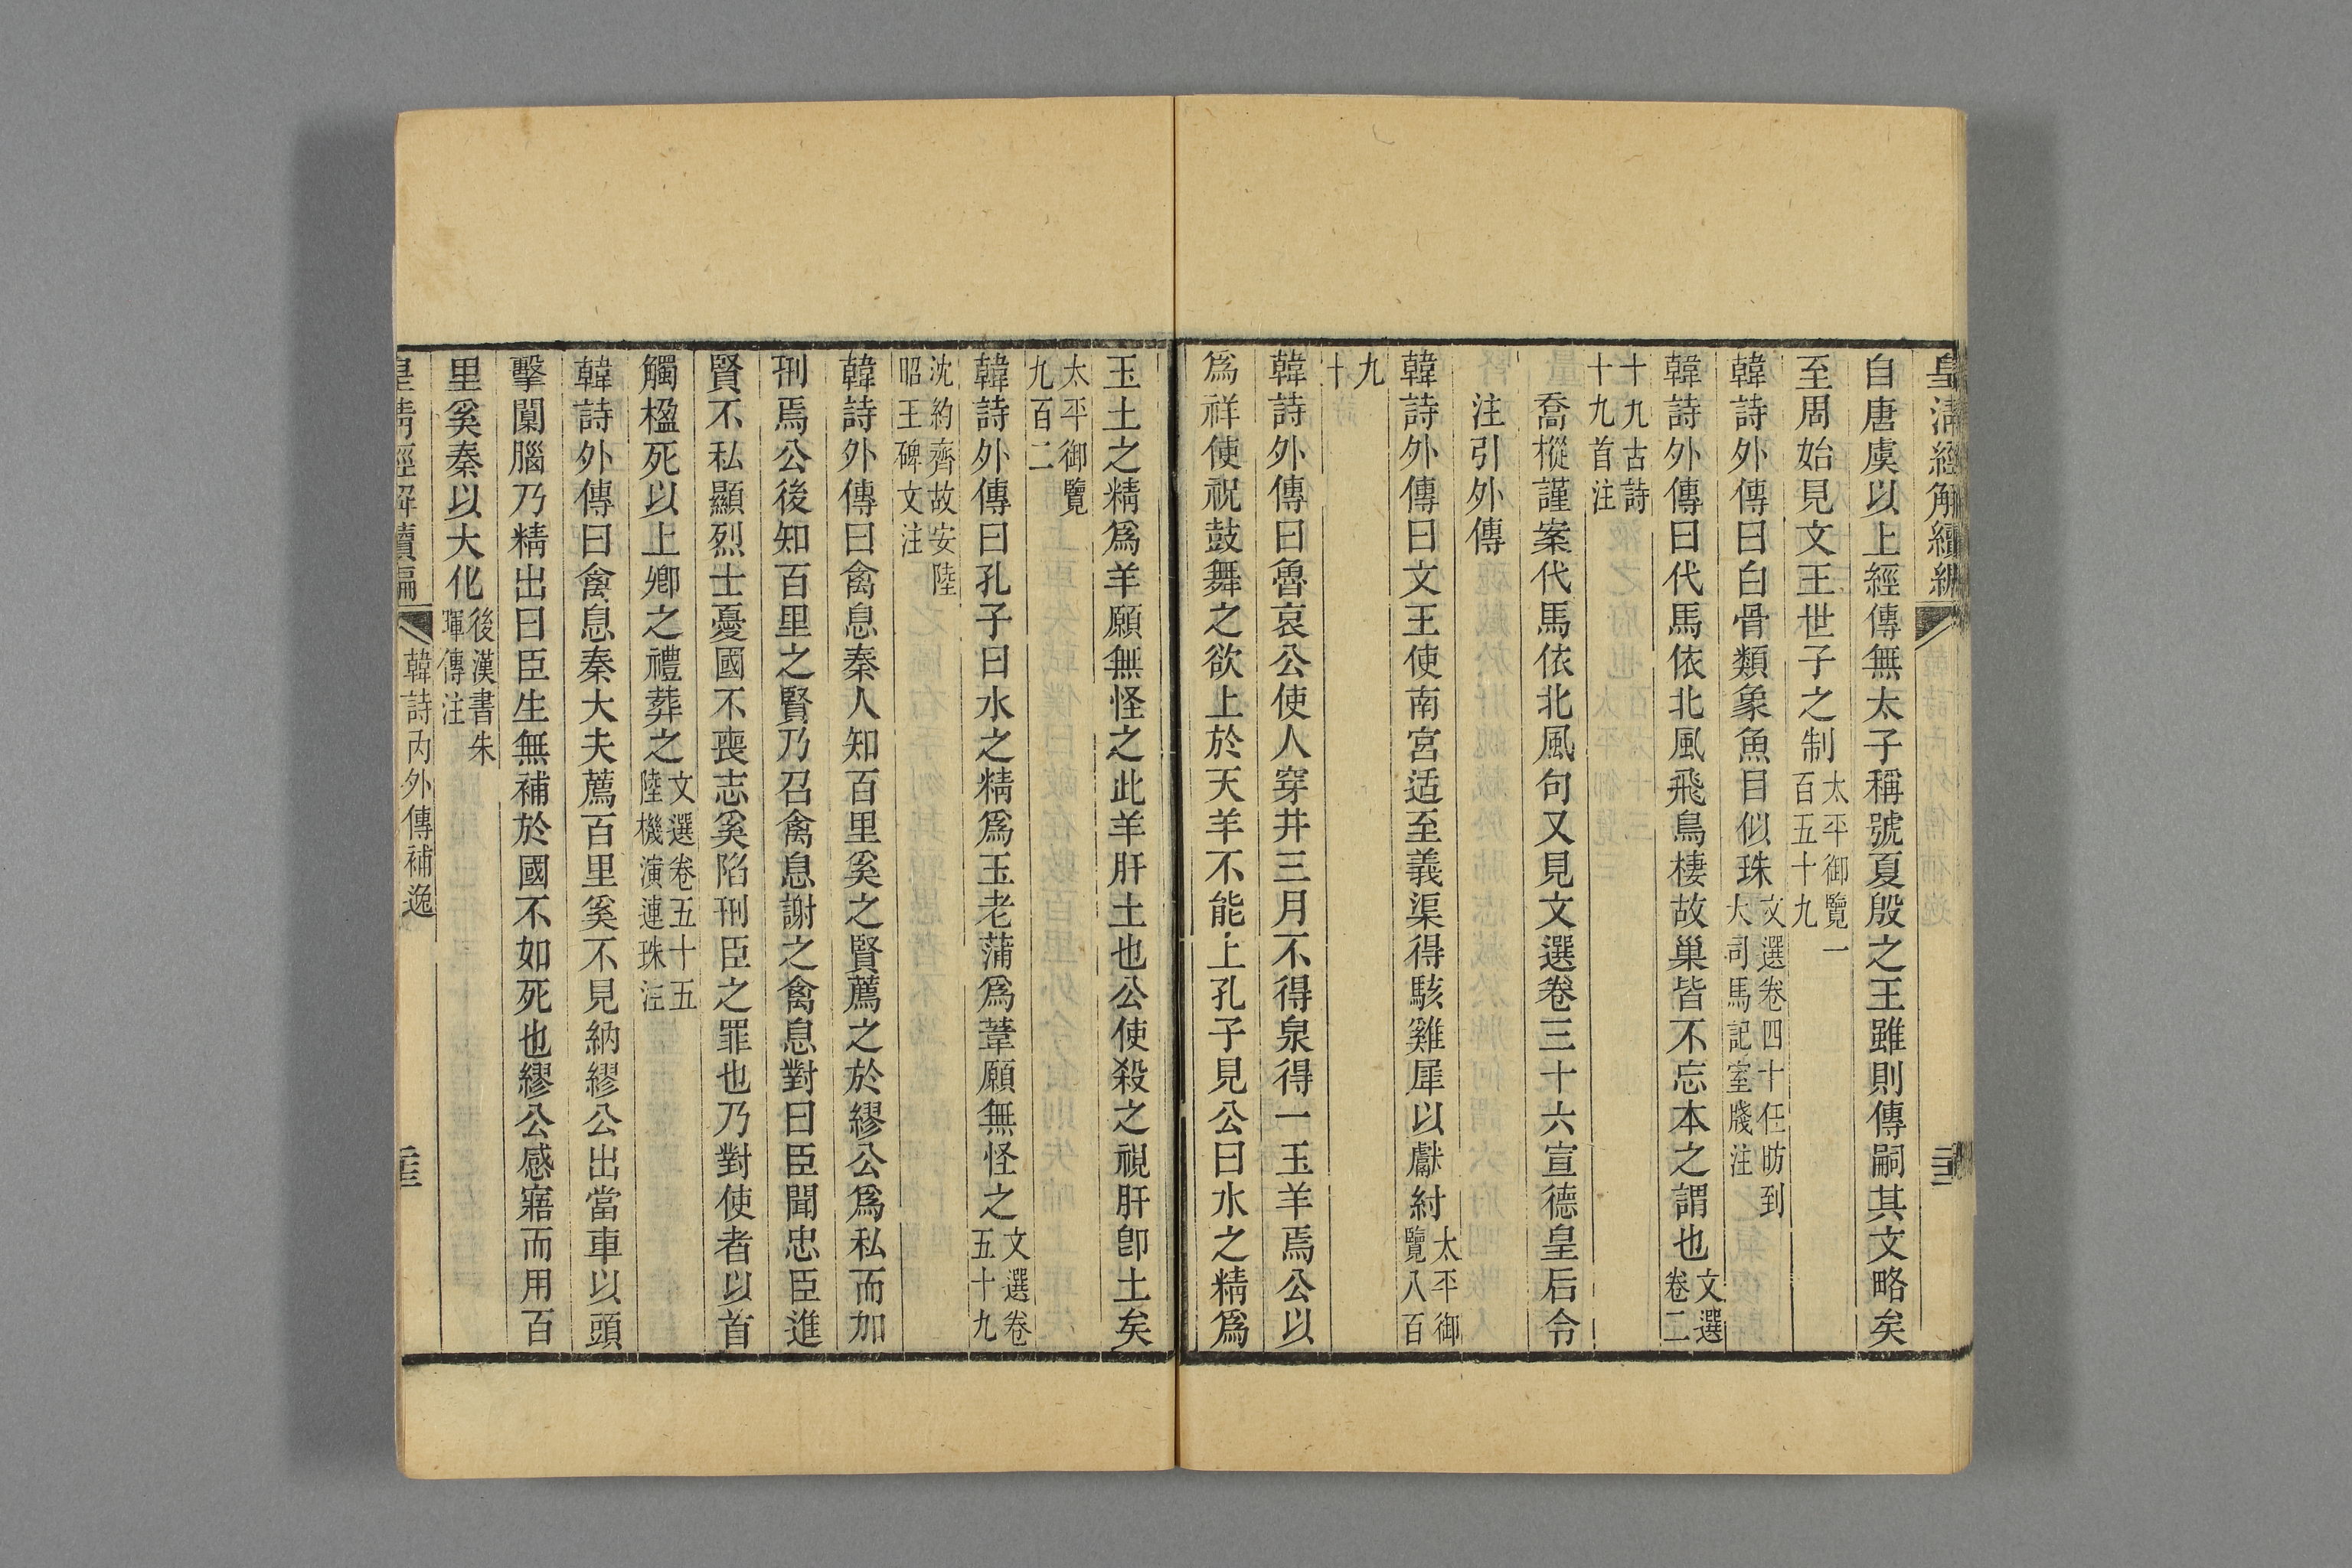 皇清經解續編
自唐虞以上經傳無太子稱號夏殷之王雖則傳嗣其文略矣
至周始見文王世子之制太平御覽一百五十九
韓詩外傳曰白骨類象魚目似珠文選卷四十任昉到大司馬記室牋注
韓詩外傳曰代馬依北風飛鳥棲故巢皆不忘本之謂也文選卷二
十九古詩十九首注
喬樅謹案代馬依北風句又見文選卷三十六宣德皇后令
注引外傳
韓詩外傳曰文王使南宮适至義渠得駭雞犀以獻紂太平御覽八百
九十
韓詩外傳曰魯哀公使人穿井三月不得泉得一玉羊焉公以
爲祥使祝鼓舞之欲上於天羊不能上孔子見公曰水之精爲
玉土之精爲羊願無怪之此羊肝土也公使殺之視肝卽土矣
太平御覽九百二
韓詩外傳曰孔子曰水之精爲玉老蒲爲葦願無怪之文選卷五十九
沈約齊故安陸昭王碑文注
韓詩外傳曰禽息秦人知百里奚之賢薦之於繆公爲私而加
刑焉公後知百里之賢乃召禽息謝之禽息對曰臣聞忠臣進
賢不私顯烈士憂國不喪志奚陷刑臣之罪也乃對使者以首
觸楹死以上卿之禮葬之文選卷五十五陸機演連珠注
韓詩外傳曰禽息秦大夫薦百里奚不見納繆公出當車以頭
擊闑腦乃精出曰臣生無補於國不如死也繆公感寤而用百
里奚秦以大化後漢書朱暉傳注
皇清經解續編
韓詩內外傳補逸